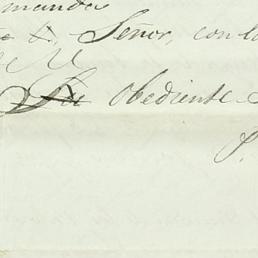 mandas
Señor, con la
M
Su obediente